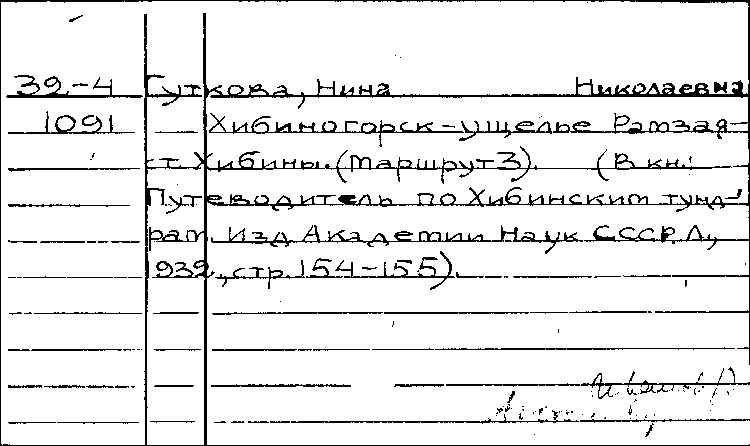 32-4 Гуткова, Нина Николаевна
1091 Хибиногорск-ущелье Рамзая-
ст. Хибины. (Маршрут 3). (В кн.:
Путеводитель по Хибинским тунд-
рам. Изд. Академии Наук СССР. Л.,
1932, стр. 154-155).